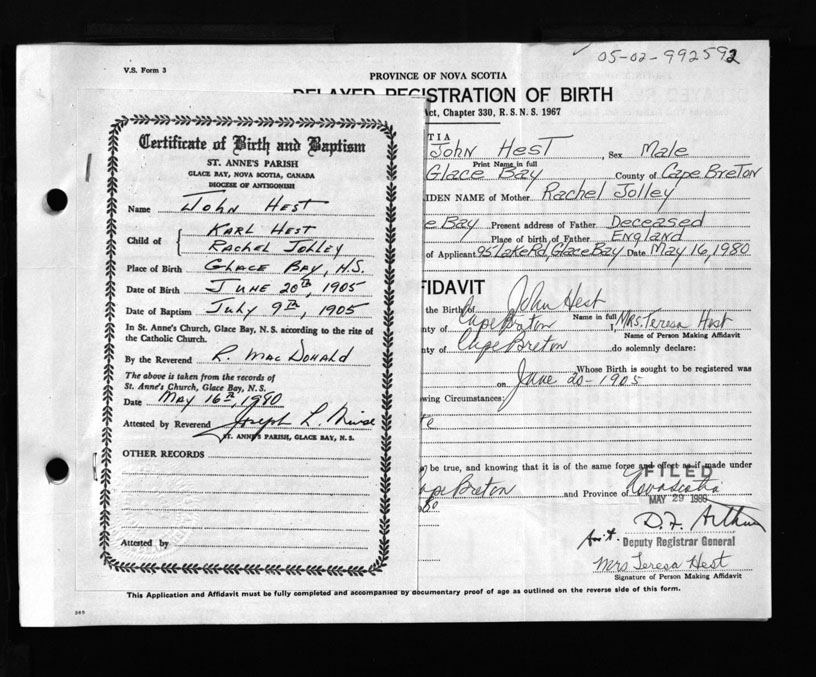 05-02-992592
V.S. Form 3
PROVINCE OF NOVA SCOTIA
DELAYED REGISTRATION OF BIRTH
Act, Chapter 330, R.S.N.S. 1967
TIA
John Hest, Sex Male
Print Name in full
Glace Bay County of Cape Breton
IDEN NAME of Mother Rachel Jolley
e Bay Present address of Father Deceased
Place of birth of Father England
of Applicant 95 Lake Rd, Glace Bay Date May 16, 1980
FIDAVIT
the Birth of John Hest
Name in full
nty of Cape Breton I, Mrs. Teresa Hest
Name of Person Making Affidavit
nty of Cape Breton do solemnly declare:
Whose Birth is sought to be registered was
on June 20-1905
owing Circumstances:
te
be true, and knowing that it is of the same force and effect as if made under
FILED
ape Breton and Province of Nova Scotia
MAY 29 1980
80
D.F. Arthur
Deputy Registrar General
Mrs Teresa Hest
Signature of Person Making Affidavit
This Application and Affidavit must be fully completed and accompanied by documentary proof of age as outlined on the reverse side of this form.
Certificate of Birth and Baptism
ST. ANNE'S PARISH
GLACE BAY, NOVA SCOTIA, CANADA
DIOCESE OF ANTIGONISH
Name John Hest
Child of { Karl Hest
Rachel Jolley
Place of Birth Glace Bay, N.S.
Date of Birth June 20th, 1905
Date of Baptism July 9th, 1905
In St. Anne's Church, Glace Bay, N. S. according to the rite of
the Catholic Church.
By the Reverend R. MacDonald
The above is taken from the records of
St. Anne's Church, Glace Bay, N. S.
Date May 16th, 1980
Attested by Reverend Joseph L.
ST. ANNE'S PARISH, GLACE BAY, N. S.
OTHER RECORDS
Attested by